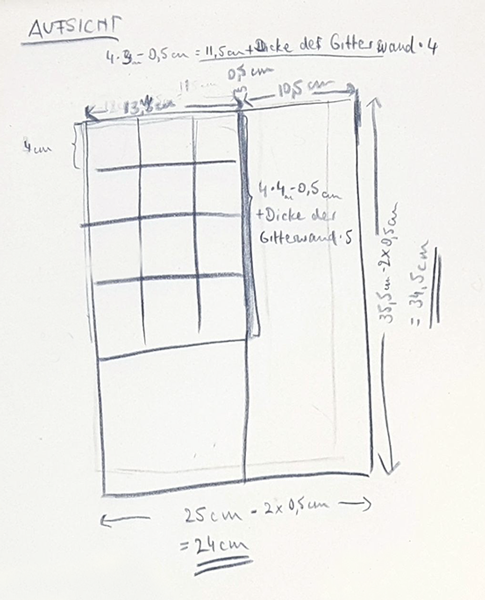 AUFSICHT
4·3 - 0,5cm = 11,5cm + Dicke der Gitterwand · 4
0,5cm
10,5cm
4cm
4·4 - 0,5cm
+Dicke der
Gitterwand · 5
35,5cm - 2x0,5cm
= 34,5cm
25cm - 2x0,5cm
= 24cm